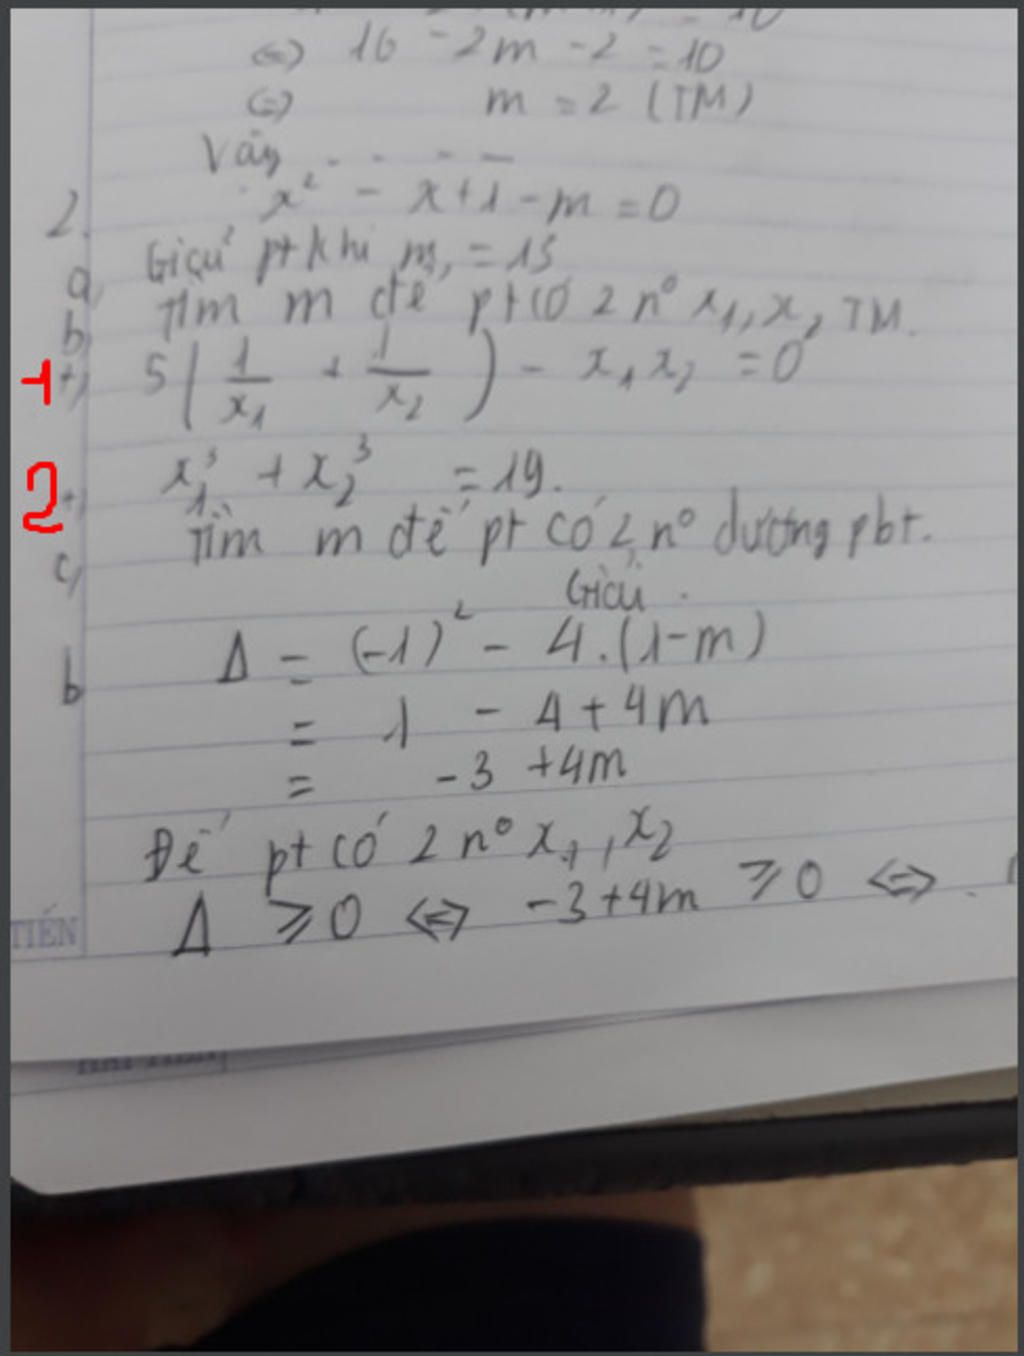 ⇔ 16 - 2m - 2 = 10
⇔ m = 2 (TM)
Vậy - - - -
2. x² - x + 1 - m = 0
a, Giải pt khi m = 13
b, Tìm m để pt có 2 nº x₁, x₂ TM.
1 +) 5(1/x₁ + 1/x₂) - x₁x₂ = 0
2 +) x₁³ + x₂³ = 19.
c, Tìm m để pt có 2 nº dương pbt.
Giải.
b Δ = (-1)² - 4.(1-m)
= 1 - 4 + 4m
= -3 + 4m
Để pt có 2 nº x₁, x₂
Δ ⩾ 0 ⇔ -3 + 4m ⩾ 0 ⇔
TIẾN